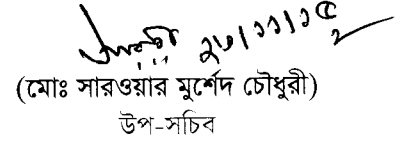 ২৩/১১/১৫
(মোঃ সারওয়ার মুর্শেদ চৌধুরী)
উপ-সচিব